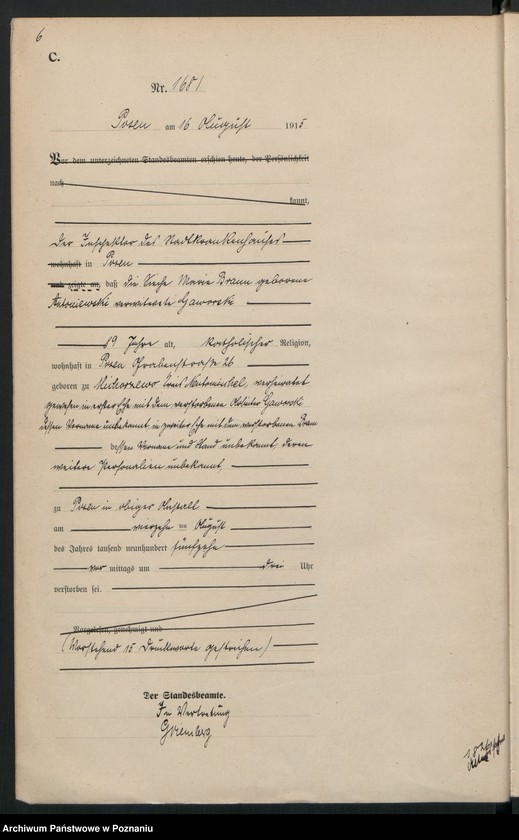 6
C.
Nr. 1681
Posen am 16 August 1915
Vor dem unterzeichneten Standesbeamten erschien heute, der Persönlichkeit
nach
kannt,
Der Inspektor des Stadtkrankenhauses
wohnhaft in Posen
und zeigte an, daß die Marie Braun geborene
Antoniewski verwitwete Gaworski
69 Jahre alt, katholischer Religion,
wohnhaft in Posen Grabenstraße 26
geboren zu Michorzewo Kreis Neutomischel, verheiratet
gewesen in erster Ehe mit dem verstorbenen Gaworski
dessen Vorname unbekannt in zweiter Ehe mit dem verstorbenen Braun
dessen Vorname und Stand unbekannt, deren
weitere Personalien unbekannt,
zu Posen in obiger Anstalt
am vierzehn ten August
des Jahres tausend neunhundert fünfzehn
vor mittags um drei Uhr
verstorben sei.
Vorgelesen, genehmigt und
(Vorstehend 15 Druckworte gestrichen)
Der Standesbeamte.
In Vertretung
Archiwum Państwowe w Poznaniu